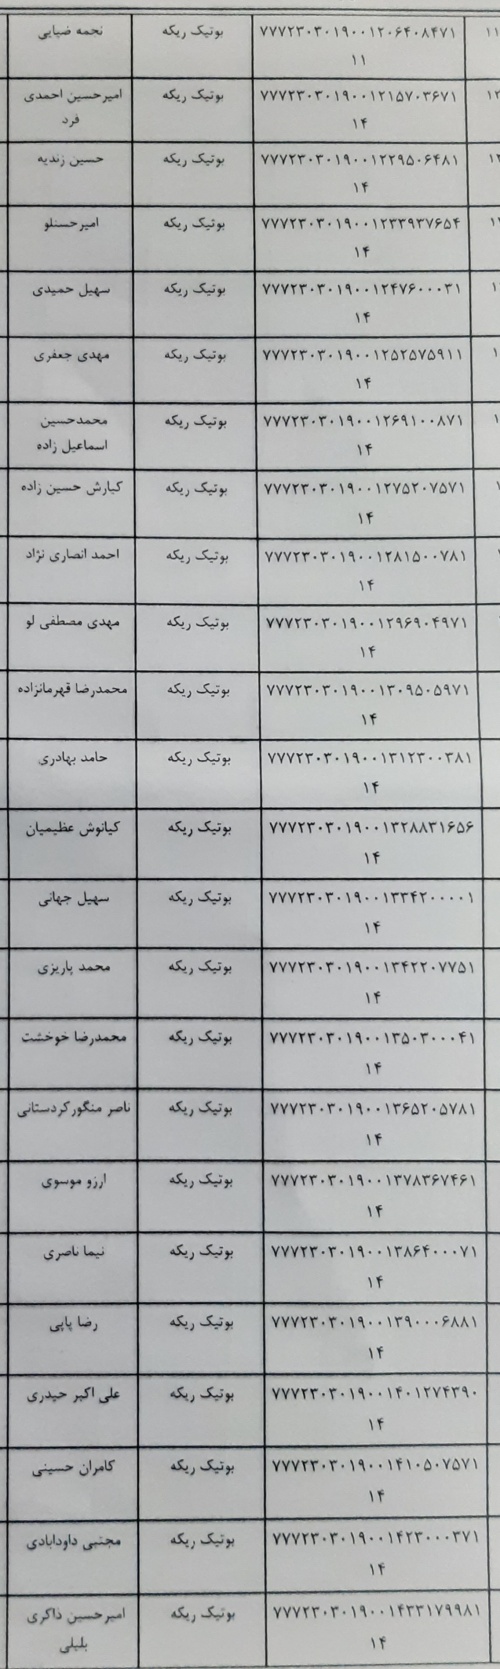 ۱۱ ۷۷۷۲۳۰۳۰۱۹۰۰۱۲۰۶۴۰۸۴۷۱ بوتیک ریکه نجمه ضیایی
۱۱
۷۷۷۲۳۰۳۰۱۹۰۰۱۲۱۵۷۰۳۶۷۱ بوتیک ریکه امیرحسین احمدی
۱۴ فرد
۷۷۷۲۳۰۳۰۱۹۰۰۱۲۲۹۵۰۶۴۸۱ بوتیک ریکه حسین زندیه
۱۴
۷۷۷۲۳۰۳۰۱۹۰۰۱۲۳۳۹۳۷۶۵۴ بوتیک ریکه امیرحسنلو
۱۴
۷۷۷۲۳۰۳۰۱۹۰۰۱۲۴۷۶۰۰۰۳۱ بوتیک ریکه سهیل حمیدی
۱۴
۷۷۷۲۳۰۳۰۱۹۰۰۱۲۵۲۵۷۵۹۱۱ بوتیک ریکه مهدی جعفری
۱۴
۷۷۷۲۳۰۳۰۱۹۰۰۱۲۶۹۱۰۰۸۷۱ بوتیک ریکه محمدحسین
۱۴ اسماعیل زاده
۷۷۷۲۳۰۳۰۱۹۰۰۱۲۷۵۲۰۷۵۷۱ بوتیک ریکه کیارش حسین زاده
۱۴
۷۷۷۲۳۰۳۰۱۹۰۰۱۲۸۱۵۰۰۷۸۱ بوتیک ریکه احمد انصاری نژاد
۱۴
۷۷۷۲۳۰۳۰۱۹۰۰۱۲۹۶۹۰۴۹۷۱ بوتیک ریکه مهدی مصطفی لو
۱۴
۷۷۷۲۳۰۳۰۱۹۰۰۱۳۰۹۵۰۵۹۷۱ بوتیک ریکه محمدرضا قهرمانزاده
۱۴
۷۷۷۲۳۰۳۰۱۹۰۰۱۳۱۲۳۰۰۳۸۱ بوتیک ریکه حامد بهادری
۱۴
۷۷۷۲۳۰۳۰۱۹۰۰۱۳۲۸۸۳۱۶۵۶ بوتیک ریکه کیانوش عظیمیان
۱۴
۷۷۷۲۳۰۳۰۱۹۰۰۱۳۳۴۲۰۰۰۰۱ بوتیک ریکه سهیل جهانی
۱۴
۷۷۷۲۳۰۳۰۱۹۰۰۱۳۴۲۲۰۷۷۵۱ بوتیک ریکه محمد پاریزی
۱۴
۷۷۷۲۳۰۳۰۱۹۰۰۱۳۵۰۳۰۰۰۴۱ بوتیک ریکه محمدرضا خوخشت
۱۴
۷۷۷۲۳۰۳۰۱۹۰۰۱۳۶۵۲۰۵۷۸۱ بوتیک ریکه ناصر منگورکردستانی
۱۴
۷۷۷۲۳۰۳۰۱۹۰۰۱۳۷۸۳۶۷۴۶۱ بوتیک ریکه ارزو موسوی
۱۴
۷۷۷۲۳۰۳۰۱۹۰۰۱۳۸۶۴۰۰۰۷۱ بوتیک ریکه نیما ناصری
۱۴
۷۷۷۲۳۰۳۰۱۹۰۰۱۳۹۰۰۰۶۸۸۱ بوتیک ریکه رضا پاپی
۱۴
۷۷۷۲۳۰۳۰۱۹۰۰۱۴۰۱۲۷۴۳۹۰ بوتیک ریکه علی اکبر حیدری
۱۴
۷۷۷۲۳۰۳۰۱۹۰۰۱۴۱۰۵۰۷۵۷۱ بوتیک ریکه کامران حسینی
۱۴
۷۷۷۲۳۰۳۰۱۹۰۰۱۴۲۳۰۰۰۳۷۱ بوتیک ریکه مجتبی داودابادی
۱۴
۷۷۷۲۳۰۳۰۱۹۰۰۱۴۳۳۱۷۹۹۸۱ بوتیک ریکه امیرحسین ذاکری
۱۴ بلبلی